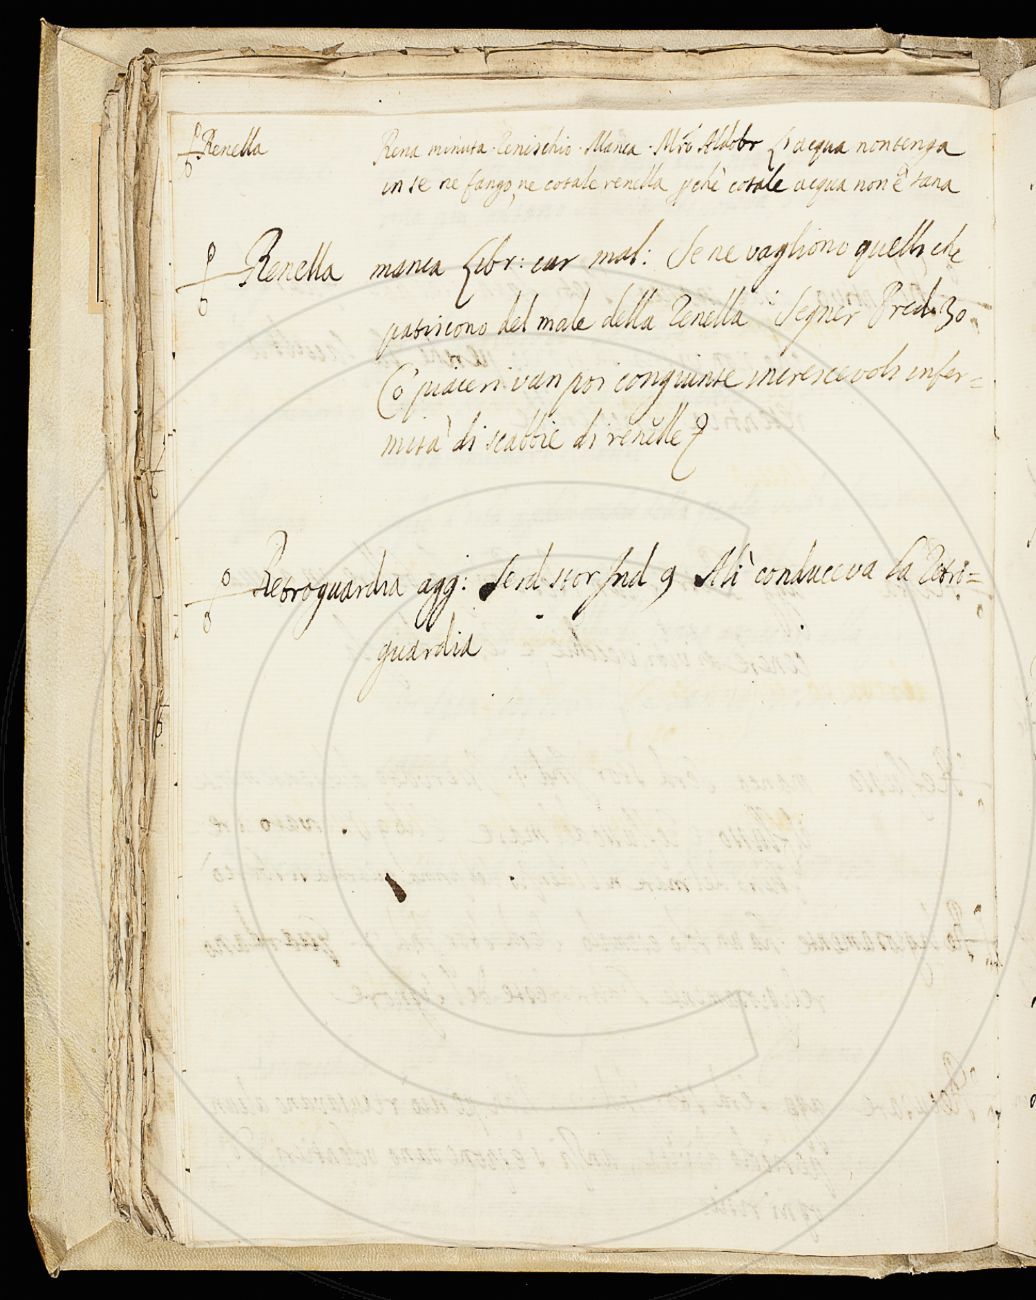 Renella Rena minuta. Renischio. Manca. Mrō Aldobr acqua non tenga
in se ne fango, ne cotale renella pchè cotale acqua non è sana
Renella manca Libr: cur mal: Se ne vagliono quelli che
patiscono del male della Renella Segner Pred. 30
Cō piaceri van poi congiunte increscevoli infer=
mità di scabbie di renelle
Retroguardia agg: Serd stor Ind 9 Alì conduceva la Retro=
guardia